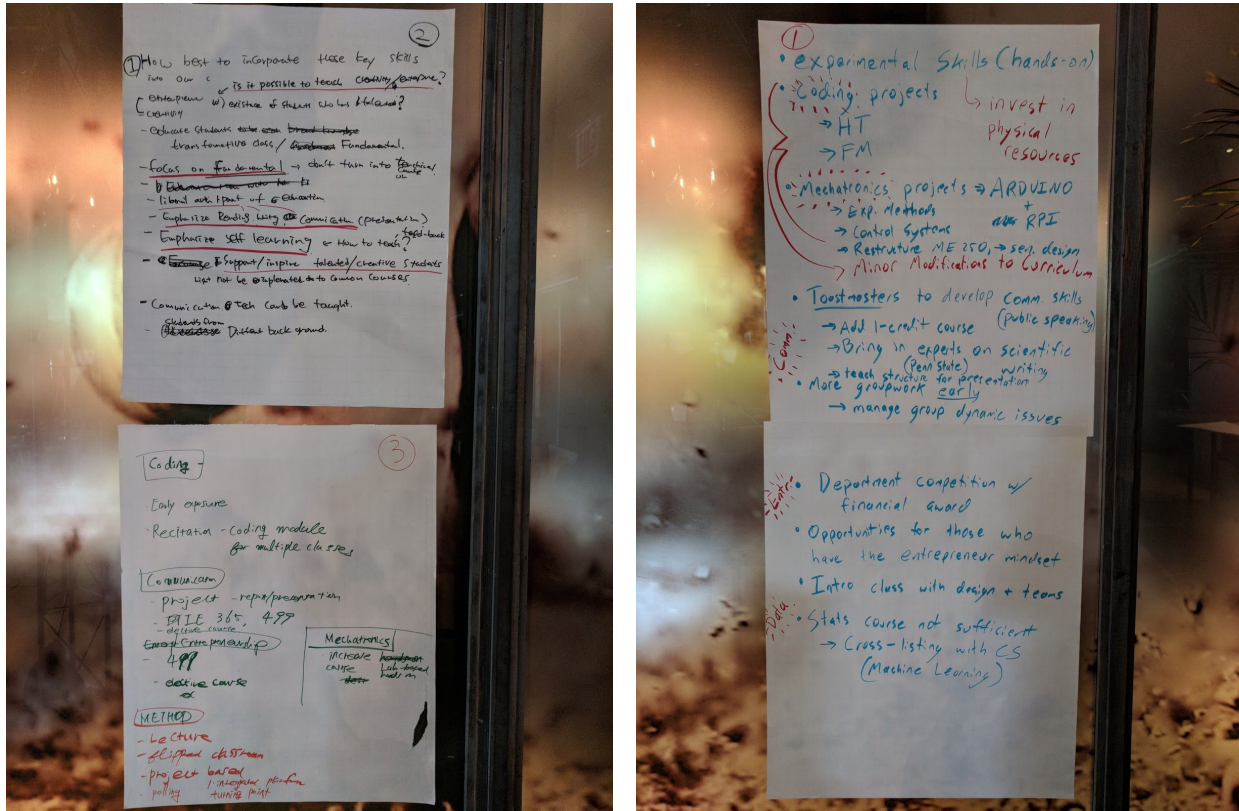 ②
① How best to incorporate these key skills
into our c
is it possible to teach creativity/enterpre?
creativity
w) existence of students who has talented?
- educate students
transformative class/ Fundamental.
- focus on fundamental → don't turn into
- liberal art part of education
- Emphasize Reading, Writing, Communication (presentation)
feed-back
- Emphasize self learning ← How to teach?
- Support/inspire talented/creative students
not be to common courses.
- Communication & tech can be taught.
students from
- Different back ground.
③
Coding -
- Early exposure
- Recitation - coding module
for multiple classes
Communicam
- project - repor/presentation
365, 499
- elective course
Entrepreneurship
- 499
- elective course
Mechatronics
increase
course
Lab-based
hands on
METHOD
- Lecture
- flipped classroom
- project based
- polling
1. integrator platform
turning point
①
• experimental skills (hands-on)
↳ invest in
physical
resources
• Coding projects
→ HT
→ FM
• Mechatronics projects → ARDUINO
+
RPI
→ Exp. Methods
→ Control Systems
→ Restructure ME 250, → sen. design
→ Minor Modifications to Curriculum
• Toastmasters to develop comm. skills
(public speaking)
→ Add 1-credit course
- Comm.
→ Bring in experts on scientific
(Penn State) writing
→ teach structure for presentation
• More groupwork early
→ manage group dynamic issues
- Entr. -
• Department competition w/
financial award
• Opportunities for those who
have the entrepreneur mindset
• Intro class with design + teams
- Data
• Stats course not sufficient
→ Cross-listing with CS
(Machine Learning)